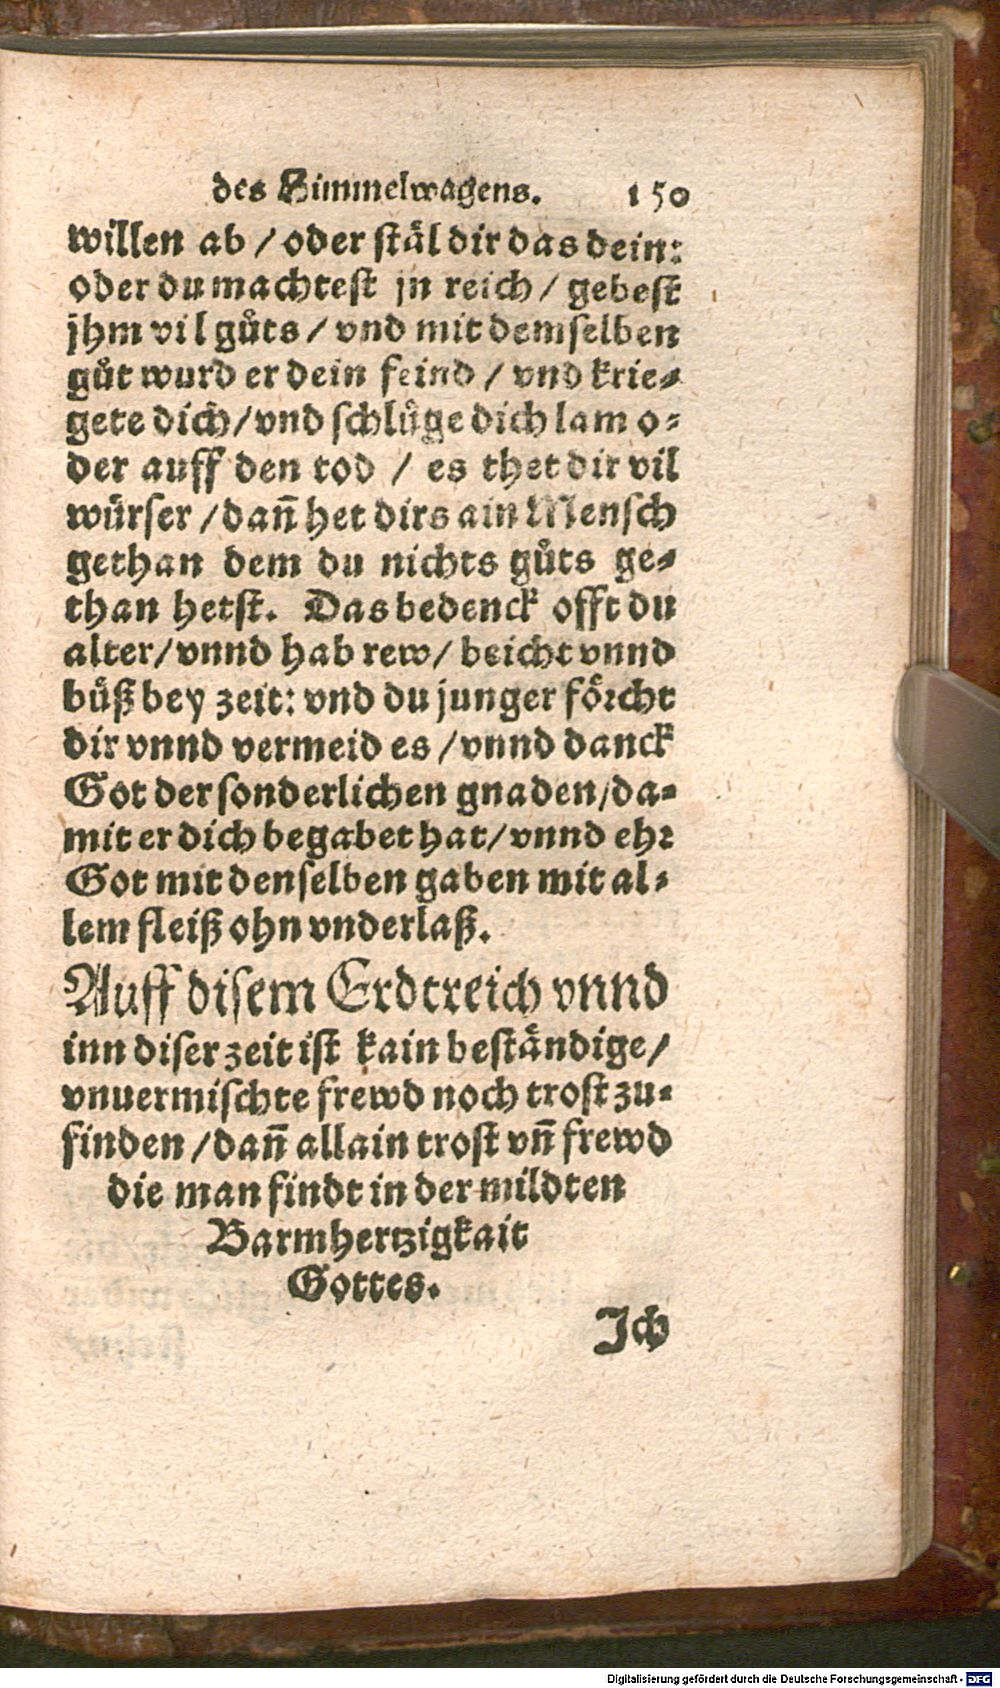 des Himmelwagens. 150
willen ab / oder stäl dir das dein:
oder du machtest jn reich / gebest
jhm vil gůts / vnd mit demselben
gůt wurd er dein feind / vnd krie⸗
gete dich / vnd schlůge dich lam o⸗
der auff den tod / es thet dir vil
würser / dañ het dirs ain Mensch
gethan dem du nichts gůts ge⸗
than hetst. Das bedenck offt du
alter / vnnd hab rew / beicht vnnd
bůß bey zeit: vnd du junger förcht
dir vnnd vermeid es / vnnd danck
Got der sonderlichen gnaden / da⸗
mit er dich begabet hat / vnnd ehr
Got mit denselben gaben mit al⸗
lem fleiß ohn vnderlaß.
Auff disem Erdtreich vnnd
inn diser zeit ist kain beständige /
vnuermischte frewd noch trost zu⸗
finden / dañ allain trost vñ frewd
die man findt in der mildten
Barmhertzigkait
Gottes.
Ich
Digitalisierung gefördert durch die Deutsche Forschungsgemeinschaft - DFG